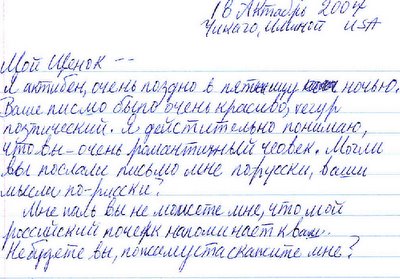 18 Актабрь 2007
Чикаго, Илиной USA
Мой Щенок --
Я активен, очень поздно в пятницу ночью.
Ваше писмо было очень красиво,
поэтический. Я действительно понимаю,
что вы - очень романтичный человек. Могли
вы послали письмо мне по русски, ваши
мысли по-руски?
Мне паль вы не можоте мне, что мой
российский почерк напоминает к вам.
Не будете вы, пожимуста скажите мне?